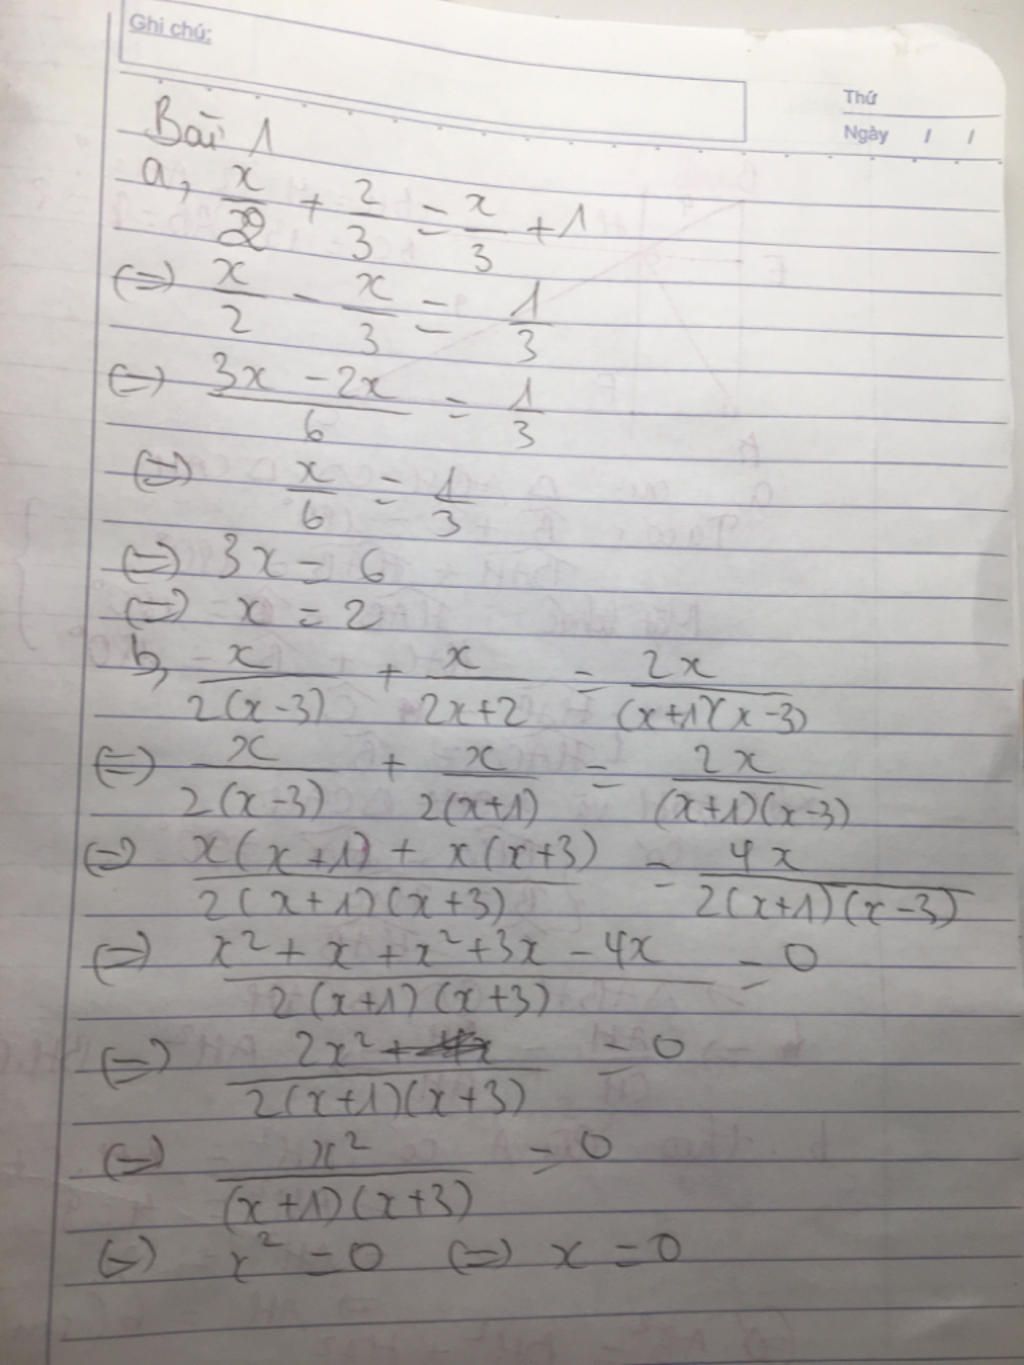 Ghi chú:
Thứ
Ngày / /
Bài 1
a, x/2 + 2/3 = x/3 + 1
(=) x/2 - x/3 = 1/3
(=) (3x - 2x)/6 = 1/3
(=) x/6 = 1/3
(=) 3x = 6
(=) x = 2
b, x/2(x-3) + x/2x+2 = 2x/(x+1)(x-3)
(=) x/2(x-3) + x/2(x+1) = 2x/(x+1)(x-3)
(=) x(x+1) + x(x+3)/2(x+1)(x+3) = 4x/2(x+1)(x-3)
(=) x²+ x +x²+3x - 4x/2(x+1)(x+3) = 0
(=) 2x²/2(x+1)(x+3) = 0
(=) x²/(x+1)(x+3) = 0
(=) x² = 0 (=) x = 0